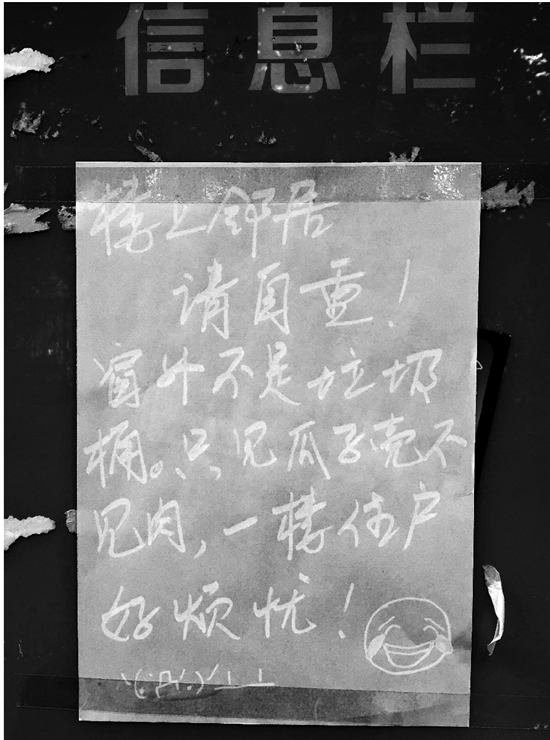 信息栏
楼上邻居
请自重!
窗外不是垃圾
桶。只见瓜子壳不
见肉,一楼住户
好烦忧!